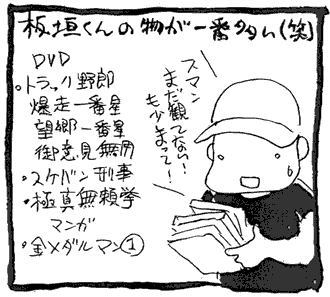 板垣くんの物が一番多い(笑)
DVD
・トラック野郎
爆走一番星
望郷一番星
御意見無用
・スケバン刑事
・極真無頼拳
マンガ
・金メダルマン①
スマン
まだ観てない！
も少しまって！